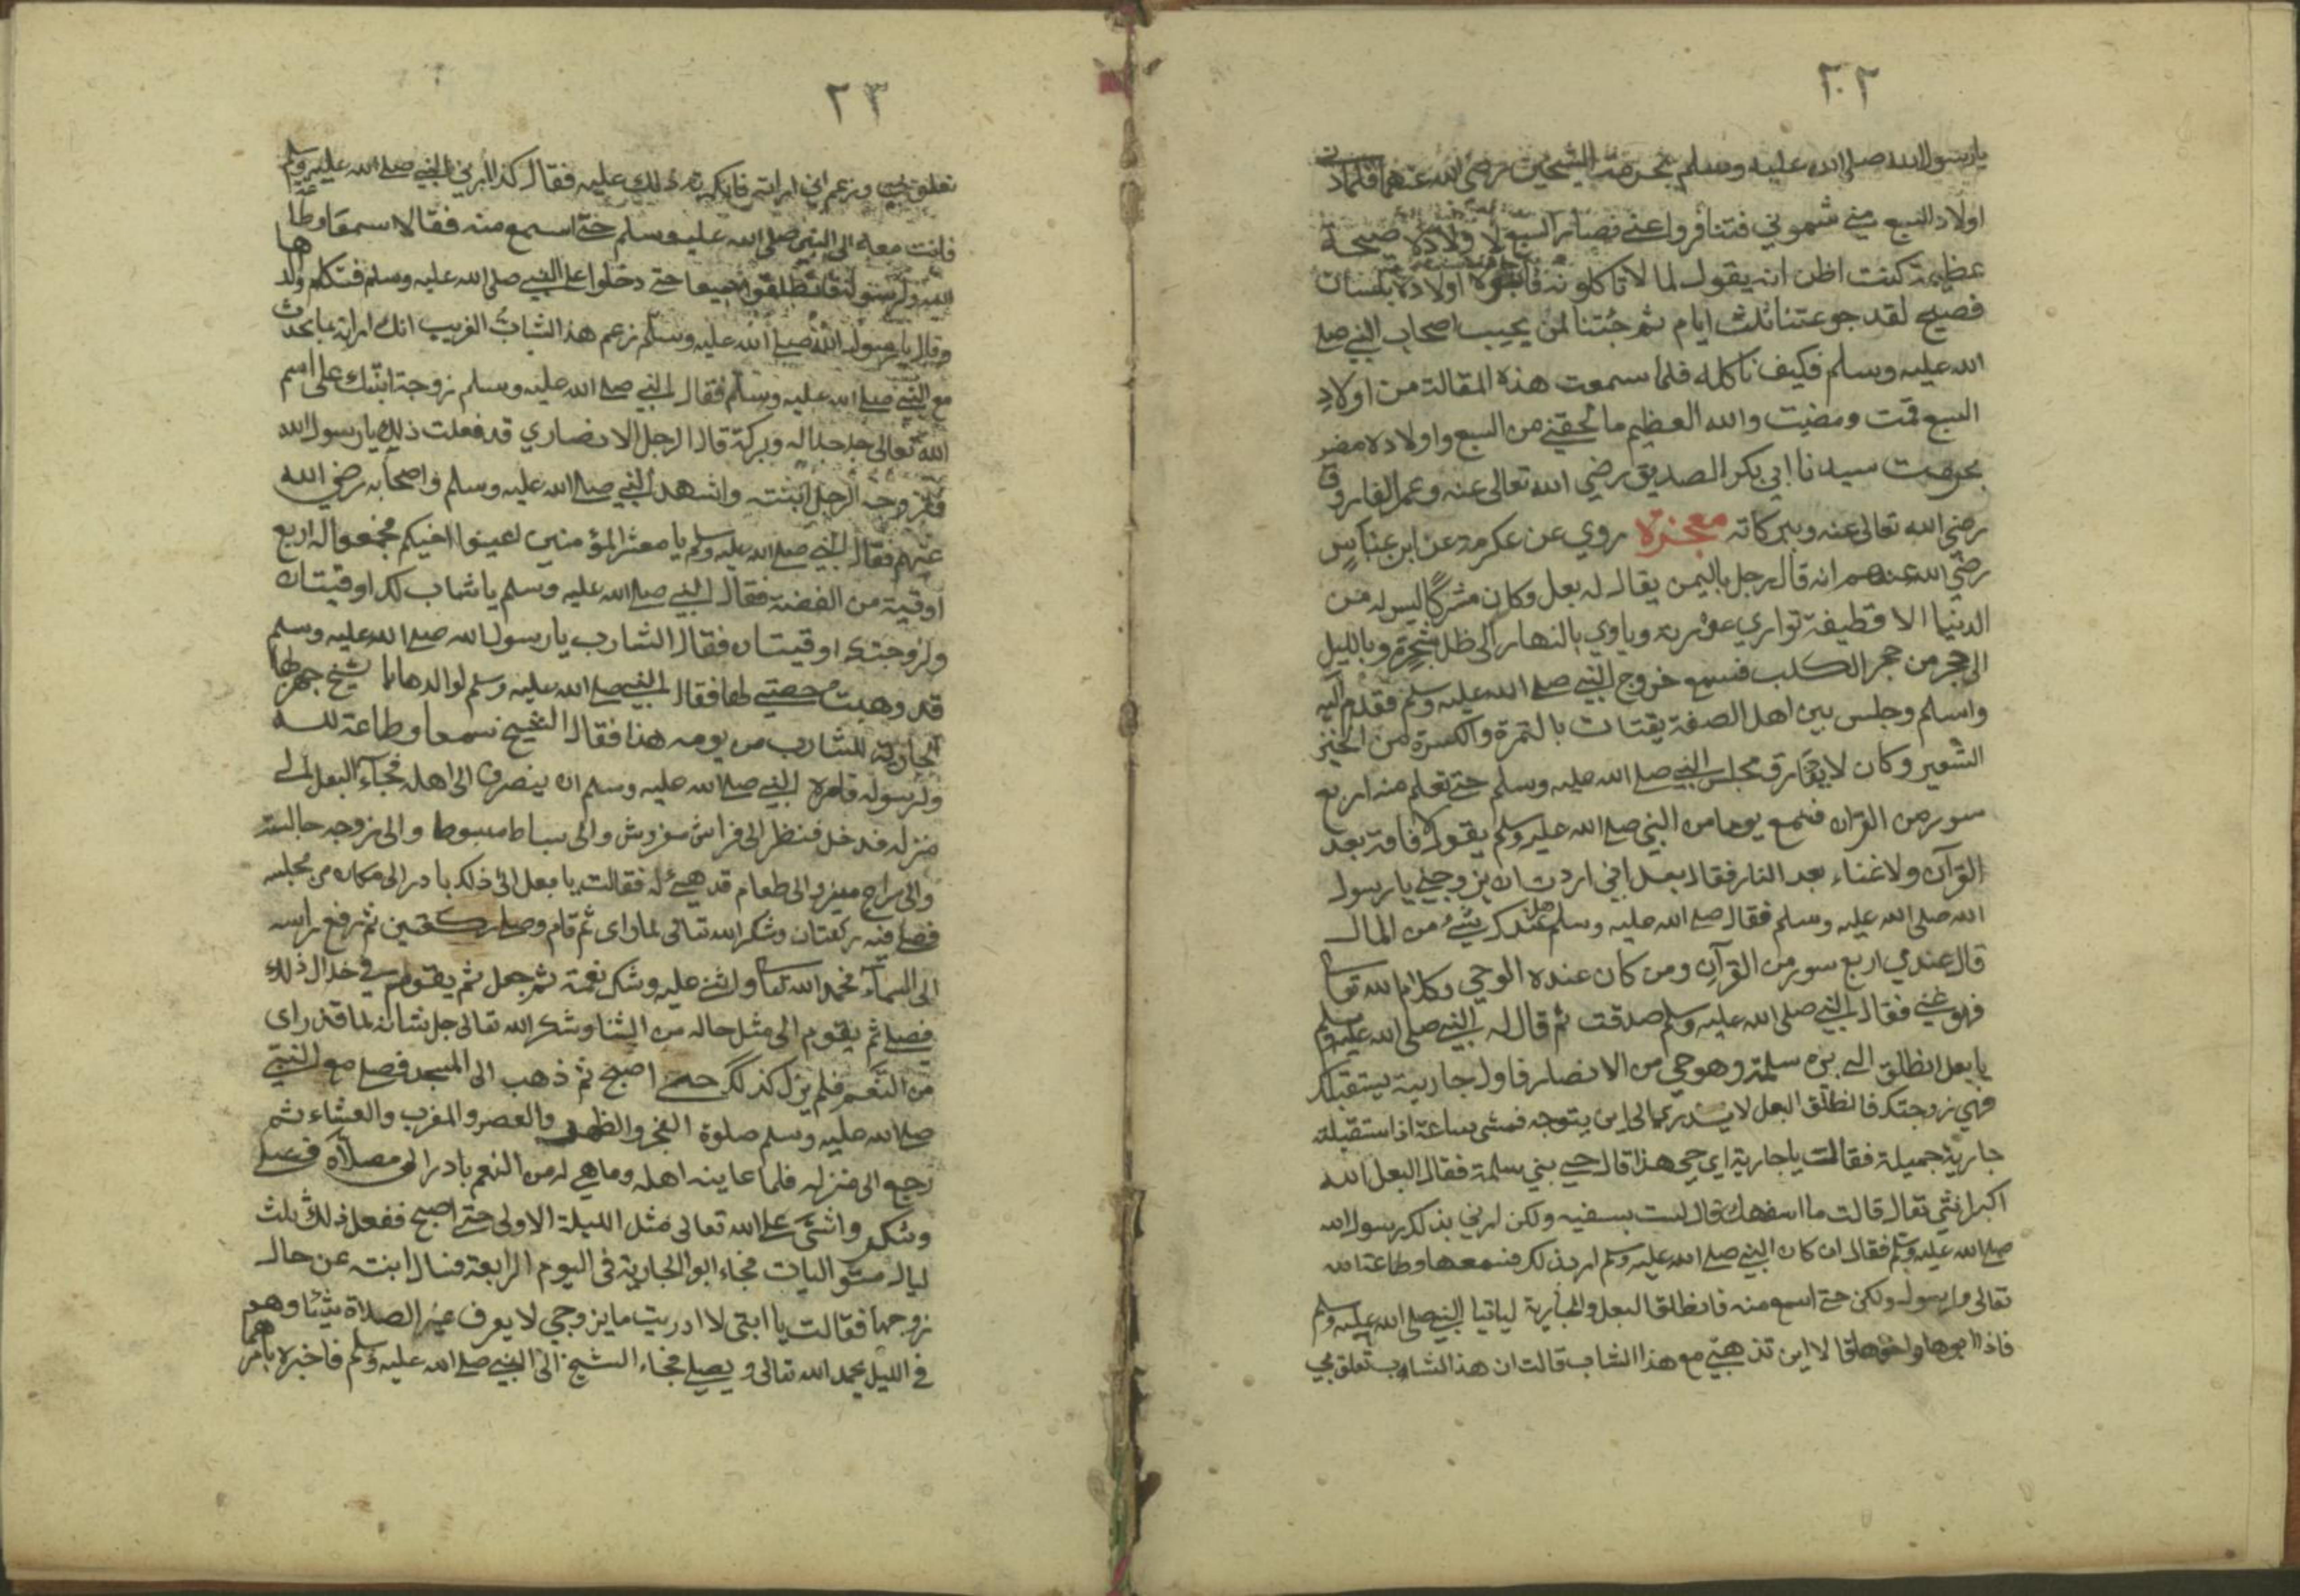 ٢٢
يا رسول الله صلى الله عليه وسلم بحرمة الشيخين رضي الله عنهما فلما
اولاد السبع مني شموني فتنافروا عني فصار السبع لاولاده صيحة
عظيمة كنت اظن انه يقول لما لا تاكلونه اولاده بلسان
فصيح لقد جوعتنا ثلث ايام ثم جئتنا لمن يحب اصحاب النبي صلى
الله عليه وسلم فكيف ناكله فلما سمعت هذه المقالة من اولاد
السبع قمت ومضيت والله العظيم ما لحقني من السبع واولاده مضر
بحرمت سيدنا ابي بكر الصديق رضي الله تعالى عنه وعمر الفاروق
رضي الله تعالى عنه وببركاته معجزة روي عن عكرمة عن ابن عباس
رضي الله عنهم انه قال رجل باليمن يقال له بعل وكان مشركا ليس له من
الدنيا الا قطيفة تواري عورته وياوي بالنهار الى ظل شجرة وبالليل
الى حجر من حجر الكلب فسمع خروج النبي صلى الله عليه وسلم فقدم اليه
واسلم وجلس بين اهل الصفة يقتات بالتمرة والكسرة من الخبز
الشعير وكان لا يفارق مجلس النبي صلى الله عليه وسلم حتى تعلم منه اربع
سور من القران فسمع يوما من النبي صلى الله عليه وسلم يقول لا فاقة بعد
القرآن ولا غناء بعد النار فقال بعل اني اردت ان يزوجني يا رسول
الله صلى الله عليه وسلم فقال صلى الله عليه وسلم هل عندك شيء من المال
قال عندي اربع سور من القرآن ومن كان عنده الوحي وكلام الله تعا
فهو غني فقال النبي صلى الله عليه وسلم صدقت ثم قال له النبي صلى الله عليه وسلم
يا بعل انطلق الى بني سلمة وهو حي من الانصار فاول جارية يستقبلك
فهي زوجتك فانطلق البعل لا يدري الى اين يتوجه فمشى ساعة اذا استقبلته
جارية جميلة فقالت يا جارية اي حي هذا قال حي بني سلمة فقال البعل الله
اكبر انثي تعال قالت ما اسفهك قال لست بسفيه ولكن امرني بذلك رسول الله
صلى الله عليه وسلم فقال ان كان النبي صلى الله عليه وسلم امر بذلك فسمعها وطاعة الله
تعالى ولرسوله ولكن حتى اسمع منه فانطلقا البعل والجارية لياتيا النبي صلى الله عليه وسلم
فاذا ابوها واخوها قالا اين تذهبي مع هذا الشاب قالت ان هذا الشاب يستعلق بي
٢٣
تعلق بي وزعم اني امراته فانكرته ذلك عليه فقال كذا امرني النبي صلى الله عليه وسلم
فاتت معه الى النبي صلى الله عليه وسلم حتى اسمع منه فقالا سمعا وطاعة
لله ولرسوله فانطلقوا جميعا حتى دخلوا على النبي صلى الله عليه وسلم فتكلم والدها
وقال يا رسول الله صلى الله عليه وسلم زعم هذا الشاب الغريب انك امرته بما يحدث
مع النبي صلى الله عليه وسلم فقال النبي صلى الله عليه وسلم زوجة ابنتك على اسم
الله تعالى جل جلاله وبركة قال الرجل الانصاري قد فعلت ذلك يا رسول الله
فزوجه الرجل ابنته واشهد النبي صلى الله عليه وسلم واصحابه رضي الله
عنهم فقال النبي صلى الله عليه وسلم يا معشر المؤمنين اعينوا اخيكم فجمعوا له اربع
اوقية من الفضة فقال النبي صلى الله عليه وسلم يا شاب لك اوقيتان
ولزوجتك اوقيتان فقال الشارب يا رسول الله صلى الله عليه وسلم
قد وهبت حصتي لها فقال النبي صلى الله عليه وسلم لوالدها يا شيخ جهزلها
الجارية للشارب من يومه هذا فقال الشيخ سمعا وطاعة لله
ولرسوله فامره النبي صلى الله عليه وسلم ان ينصرف الى اهله فجآء البعل الى
منزله فدخل فنظر الى فراش مفروش والى بساط مبسوط والى زوجه جالسة
والى سراج منير والى طعام قد هيئ له فقالت يا بعل الى ذلك بادر الى مكان من مجلسه
فصلى فيه ركعتان وشكر الله تعالى لما راى ثم قام وصلى ركعتين ثم رفع راسه
الى السماء فحمد الله تعا واثنى عليه وشكر نعمة ثم جعل ثم يقوم في خلال ذلك
فصلى ثم يقوم الى مثل حاله من الثنا وشكر الله تعالى جل شانه لما قد راى
من النعم فلم يزل كذلك حتى اصبح ثم ذهب الى المسجد فصلى مع النبي
صلى الله عليه وسلم صلوة الفجر والظهر والعصر والمغرب والعشاء ثم
رجع الى منزله فلما عاينه اهله وما هي له من النعم بادر الى مصلاه فصلى
وشكر واثنى على الله تعالى مثل الليلة الاولى حتى اصبح ففعل ذلك ثلث
ليال متواليات فجاء ابو الجارية في اليوم الرابعة فسال ابنته عن حال
زوجها فقالت يا ابتي لا ادريت ما يزوجي لا يعرف غير الصلاة شيئا وهو
في الليل يحمد الله تعالى ويصلي فجاء الشيخ الى النبي صلى الله عليه وسلم فاخبره بامرهما